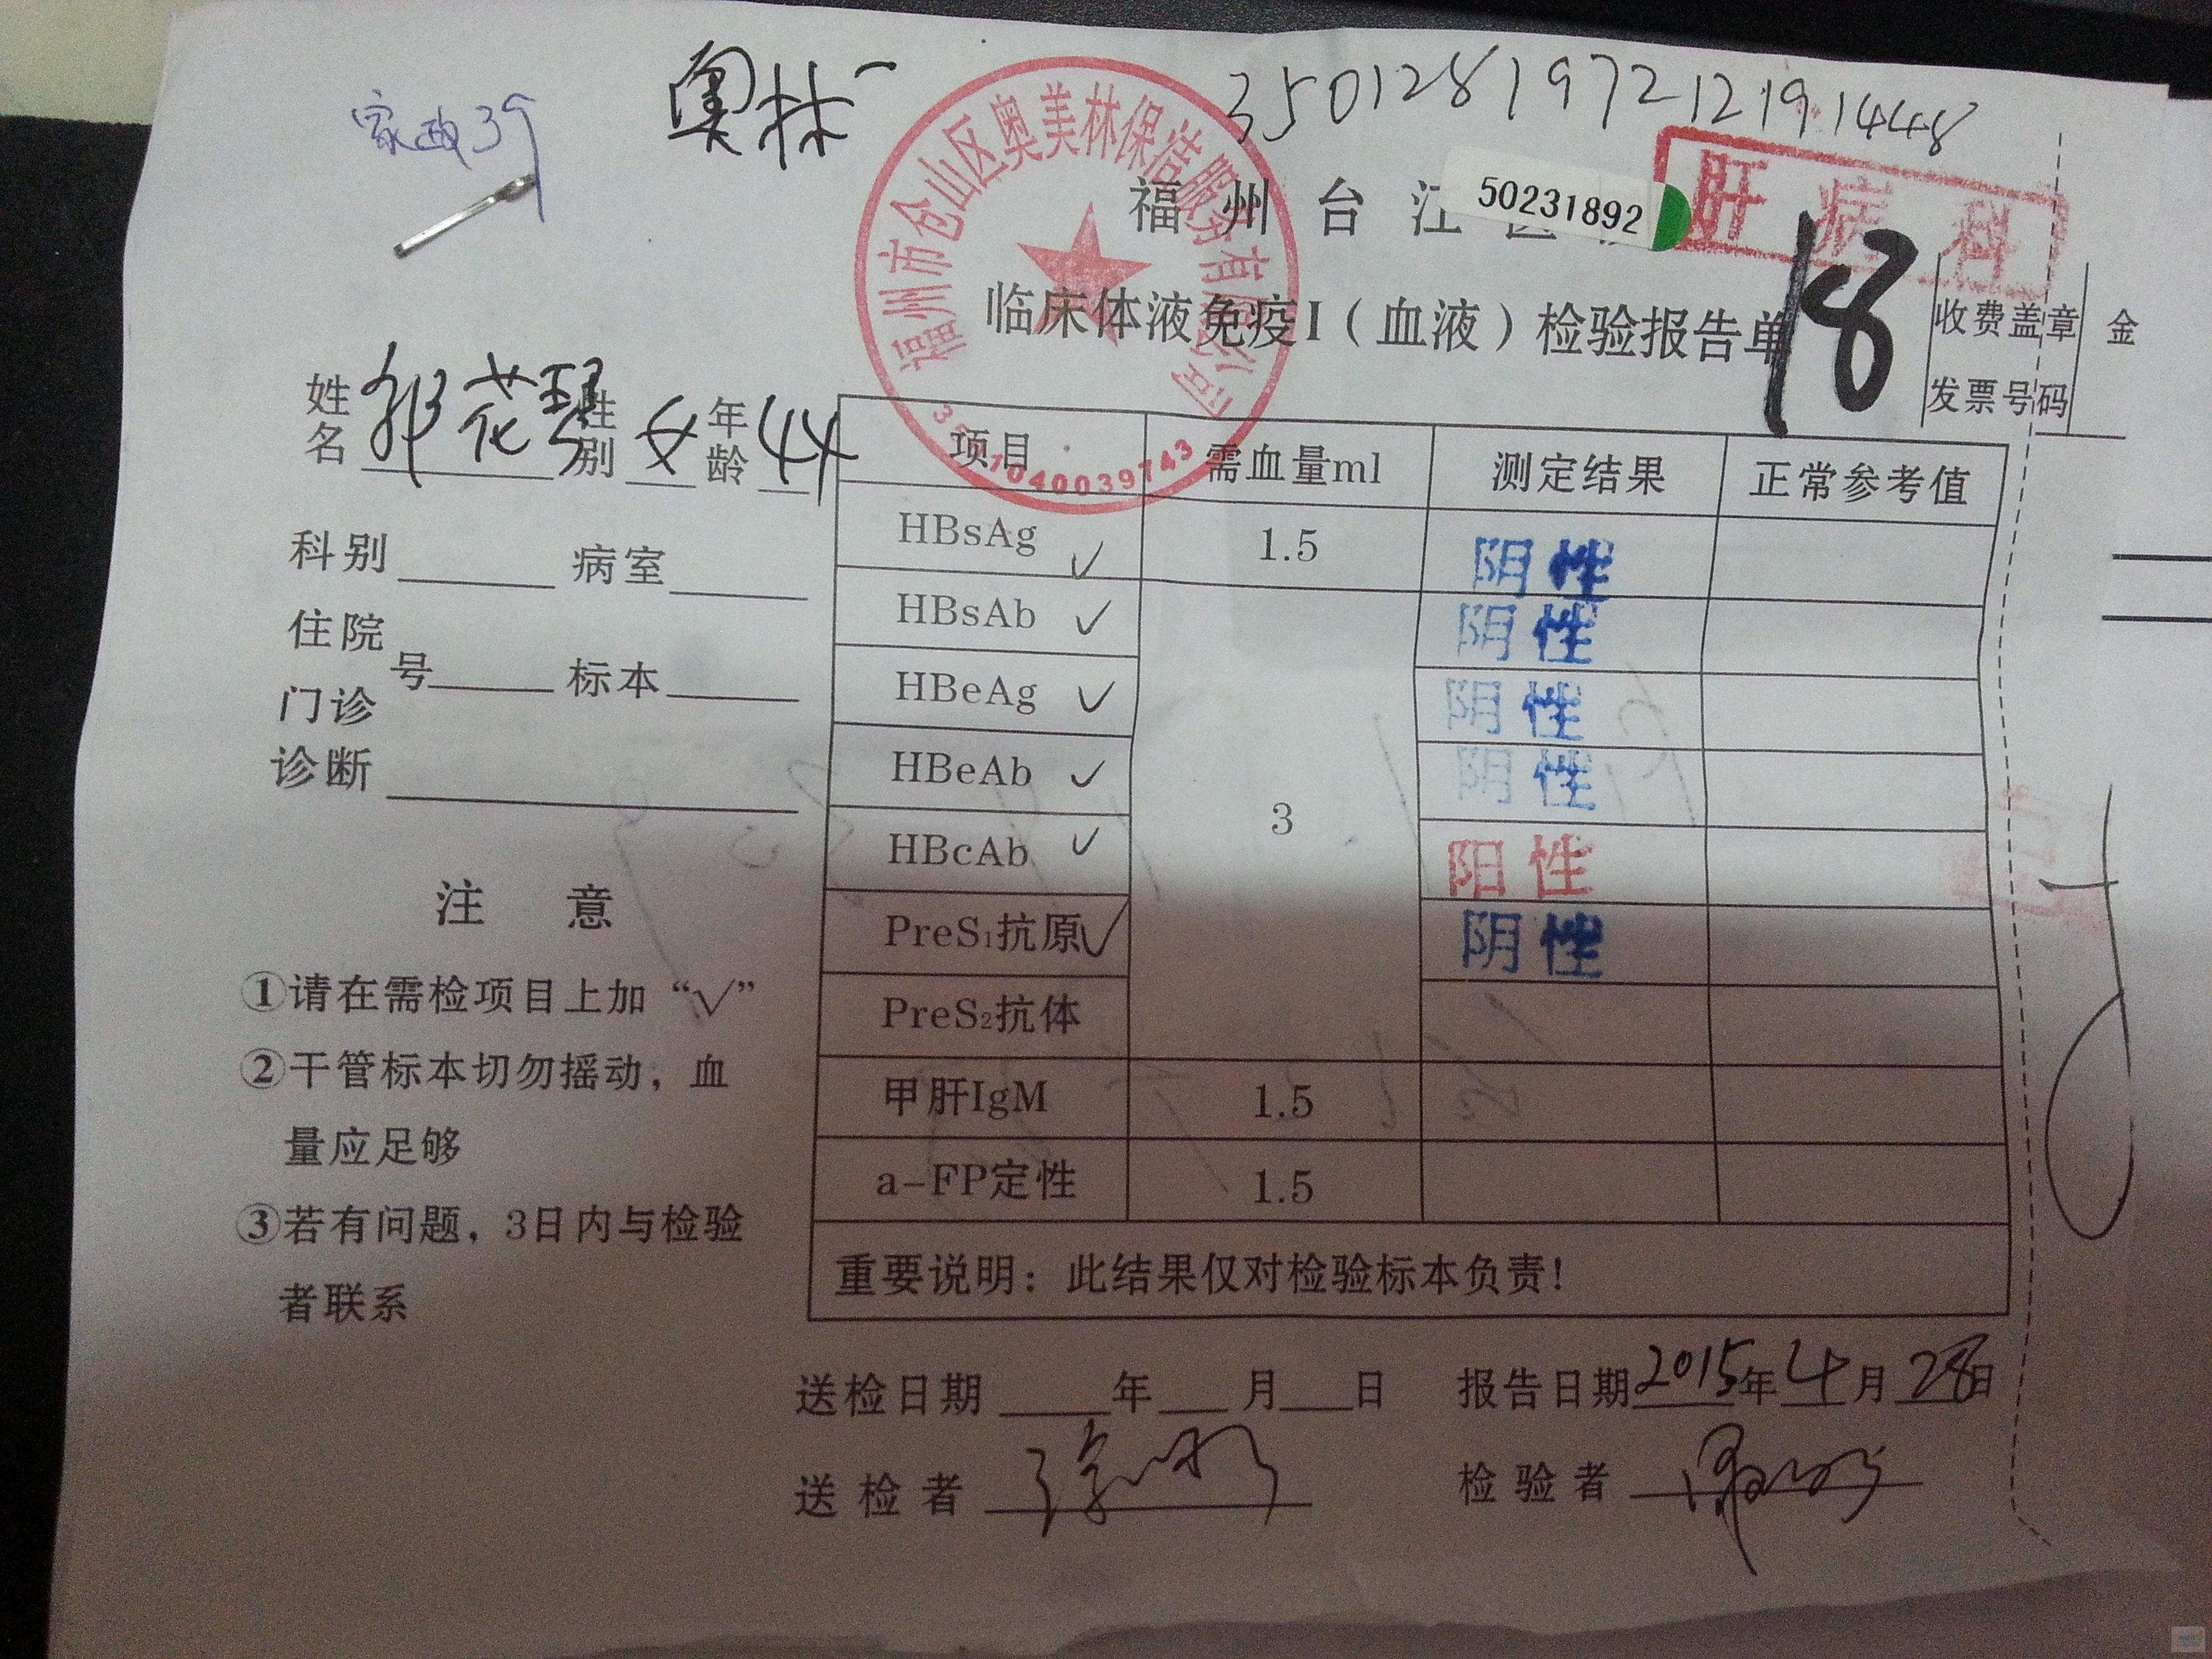 家政39
奥林一
350128197212191448
福州市仓山区奥美林保洁服务有限公司
1040039743
福州台江
50231892
肝病科
临床体液免疫I（血液）检验报告单
18
收费盖章 金
发票号码
姓名 郭花琴 性别 女 年龄 44
科别 病室
住院
号 标本
门诊
诊断
项目 需血量ml 测定结果 正常参考值
HBsAg ✓ 1.5 阴性
HBsAb ✓ 阴性
HBeAg ✓ 阴性
HBeAb ✓ 3 阴性
HBcAb ✓ 阳性
PreS₁抗原 ✓ 阴性
PreS₂抗体
甲肝IgM 1.5
a-FP定性 1.5
重要说明：此结果仅对检验标本负责！
注意
①请在需检项目上加“√”
②干管标本切勿摇动，血
量应足够
③若有问题，3日内与检验
者联系
送检日期 年 月 日 报告日期 2015年4月28日
送检者 检验者